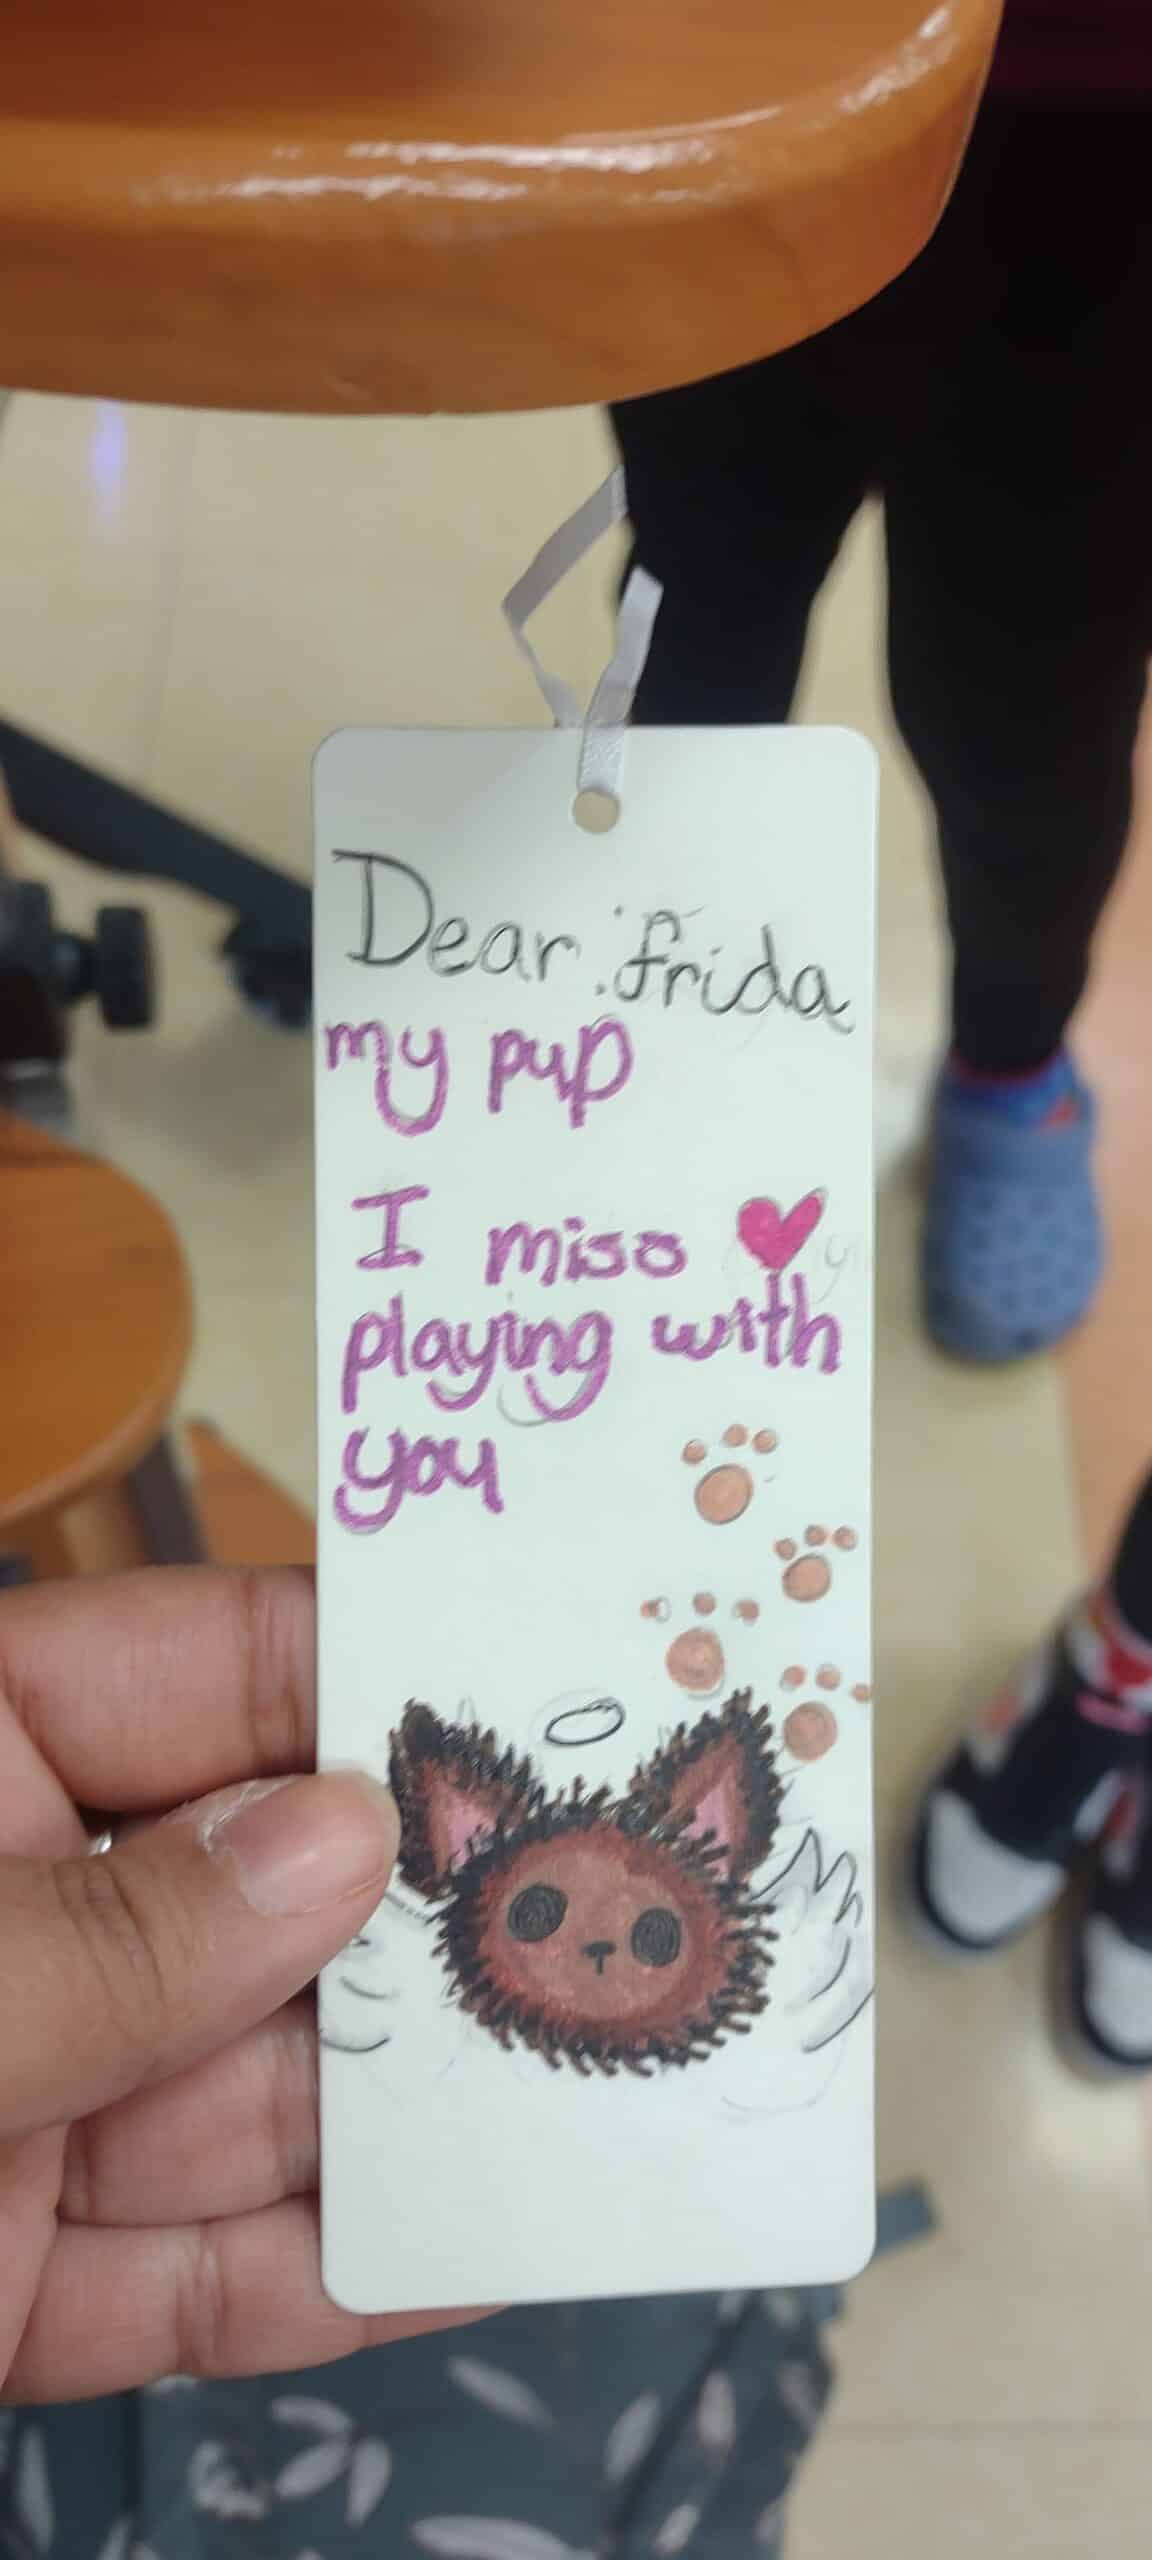 Dear frida
my pup
I miss
playing with
you